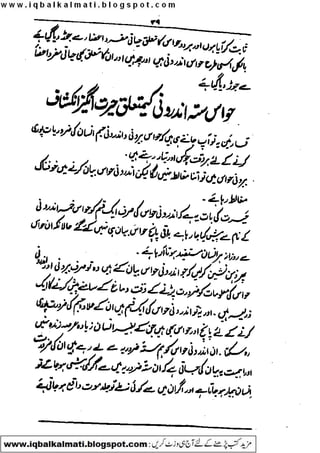 www.iqbalkalmati.blogspot.com
۳۹
ثابت کر آیا ہوں اور ہر دو حواس کا تعلق حیاتی مفرد اعضاء سے جوڑ دیا گیا ہے
بالکل اسی طرح حواس اندرونی ہیں اور ان کا تعلق بھی حیاتی مفرد اعضا
سے جوڑ دیا گیا ہے
حواس ستہ اندرونی کے متعلق حیرت انگیز انکشاف
قارئین یہ تو آپ جانتے ہی ہیں کہ حواس بیرونی و اندرونی جسم انسان کی ضروریات پوری
کرنے کے لئے ہر وقت چوکس اور تیار رہتے ہیں۔
بیرونی حواس میں تو اتنا مغالطہ نہیں لگا لیکن اندرونی حواس بیان کرنے میں خوفناک
مغالطہ رہا ہے۔
حیرت کی بات یہ ہے کہ اندرونی حواس کی صرف ایک قسم کو حواس خمسہ اندرونی
کے نام سے پیش کیا جا رہا ہے باقی پانچ حواس بیان ہی نہیں کئے گئے حالانکہ ان حواس
سے روزانہ ہر انسان مستفید ہوتا رہا ہے۔
پھر ذہن نشین کر لیں کہ جو اندرونی حواس بیان کئے ہیں وہ تو صرف بیرونی اور
حواس کی معلومات کو ضرورت پڑنے کے وقت دماغ کے سامنے پیش کرنے کا ایک
ذریعہ ہیں۔ اور یہ تو اندرونی حواس کی ایک قسم ہیں ان کے علاوہ جسم کی ضرورت پوری
کرنے کے لئے پانچ اور حواس بھی ہیں جن کے بغیر انسان زیادہ عرصہ زندہ نہیں
رہ سکتا۔ ان اندرونی حواس کو ہم ستہ ضروریہ سے لے رہے ہیں ان کی ضرورت
اور اہمیت یہ بیان کی جاتی ہے کہ ان ستہ ضروریہ میں سے اگر کمی بیشی ہو جائے تو
انسان بیمار ہو جاتا ہے اور اگر ان میں سے کوئی نہ ملے تو جلد موت واقع ہو جاتی ہے
مزید کتب پڑھنے کے لئے آج ہی وزٹ کریں : www.iqbalkalmati.blogspot.com